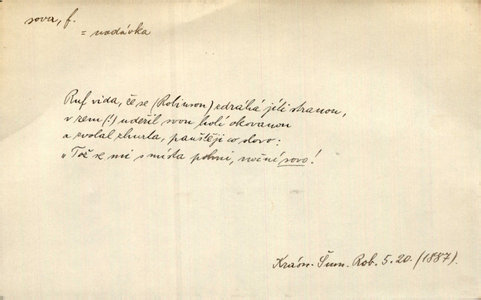 sova, f.
= nadávka
Ruf vida, že se (Robinson) jeti stranou,
v zem (!) udeřil svou holí okovanou
a zvolal zhurta, pouštěje co slovo:
„Tož se mi smída pohni, noční sovo!
Krásn. Šum. Rob. 5. 20. (1887).